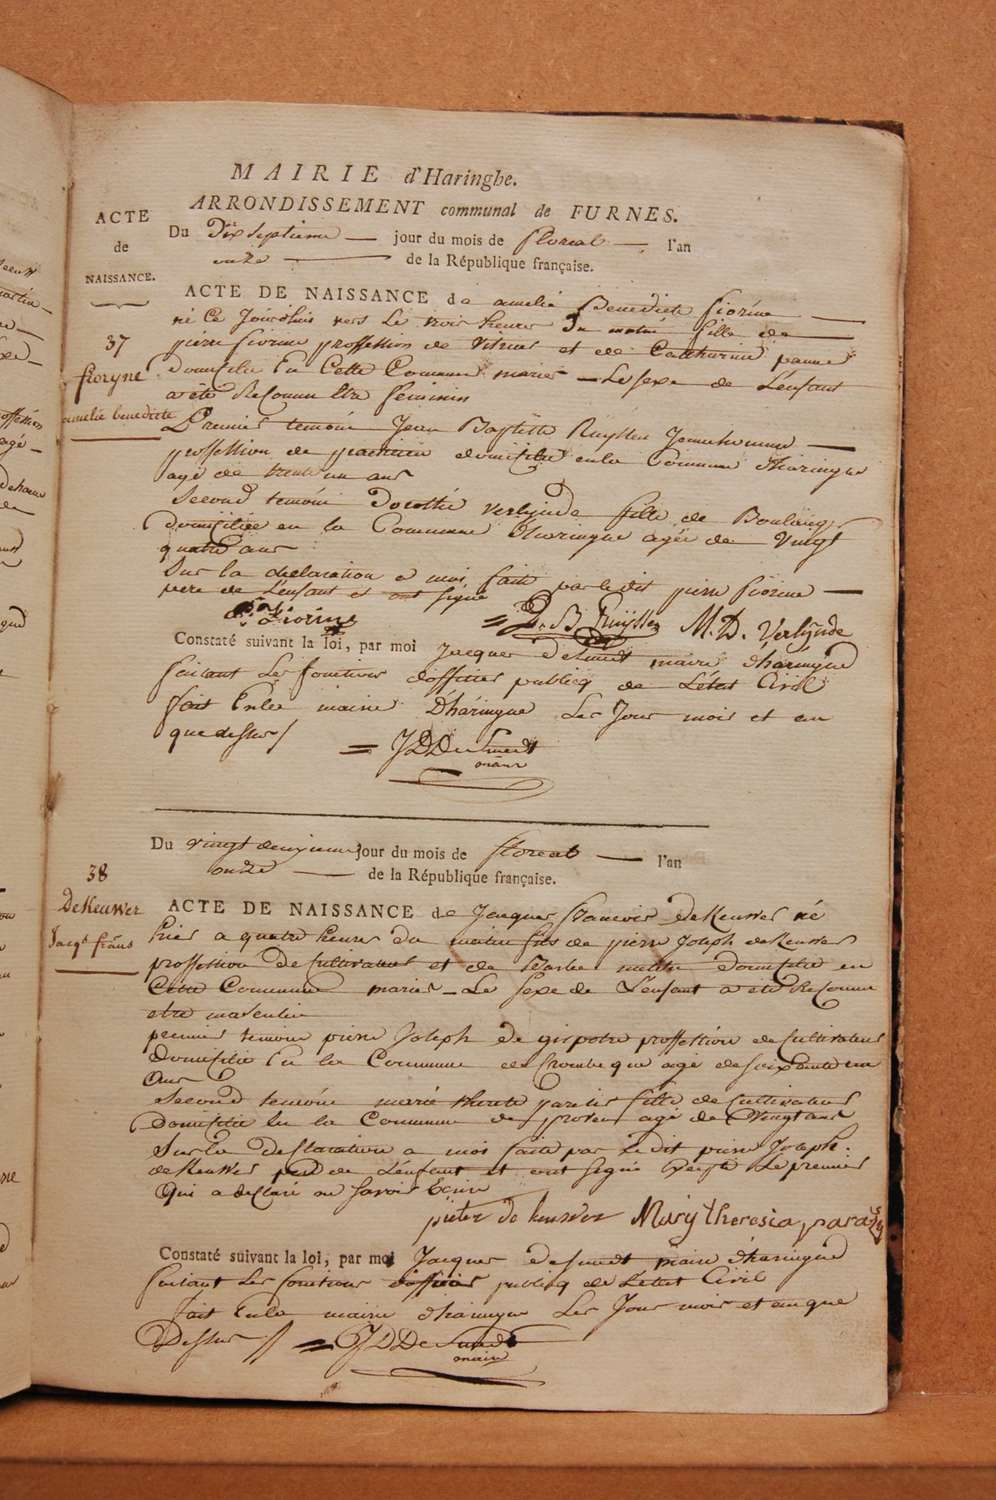 MAIRIE d'Haringhe.
ARRONDISSEMENT communal de FURNES.
ACTE
de
NAISSANCE.
Du Dix septieme — jour du mois de floreal — l'an
onze — de la République française.
ACTE DE NAISSANCE de amelie Benedicte fiorine —
né ce Jourdhuis vers les trois heures Du matin fille de
37
fioryne
amelie benedicte
pierre fiorine proffession de Vitrier et de Cattharine panne
Domicilie En Cette Commune mariés — Le sexe de L'enfant
a eté Reconnu Etre feminin
Premier temoin Jean Baptiste Ruyssen Jeune homme —
proffession de praticien domicilie en la Commune d'haringue
agé de trente un ans
Second temoin Dorothé verlynde fille de Boutiq
domiciliée en la Commune d'haringue agée de Vingt
quatre ans
Sur la declaration a moi faite par ledit pierre fiorine —
pere de L'enfant et ont signé
P. Fiorine
= J. B. Ruyssen M. D. Verlynde
Constaté suivant la loi, par moi Jacques deSmedt maire d'haringue
faisant Les fonctions d'officier publicq de L'état Civil
fait Enla mairie D'haringue Les Jour mois et an
que dessus /
= JDDeSmedt
maire
Du vingt deuxieme jour du mois de floreal — l'an
onze — de la République française.
38
DeKeuwer
Jacqs frans
ACTE DE NAISSANCE de Jacques francois deKeuwer né
hier a quatre heures du matin fils de pierre Joseph deKeuwer
proffession de Cultivateur et de Barbe domicilie en
Cette Commune mariés — Le sexe de L'enfant a eté Reconnu
etre masculin
premier temoin pierre Joseph de proffession de Cultivateur
Domicilie En la Commune de Crombeque agé de soixante un
ans
Second temoin marie therese fille de Cultivateur
Domicilie En la Commune de proven agé de Vingt ans
Sur la Declaration a moi faite par Le dit pierre Joseph
deKeuwer pere de L'enfant et ont signé Le premier
Qui a declaré ne savoir Ecrire
pieter de keuwer Mary theresia
Constaté suivant la loi, par moi Jacques desmedt maire d'haringue
faisant Les fonctions d'officier publicq de L'etat Civil
fait Enla mairie d'haringue Les Jour mois et an que
Dessus // = JDDeSmedt
maire